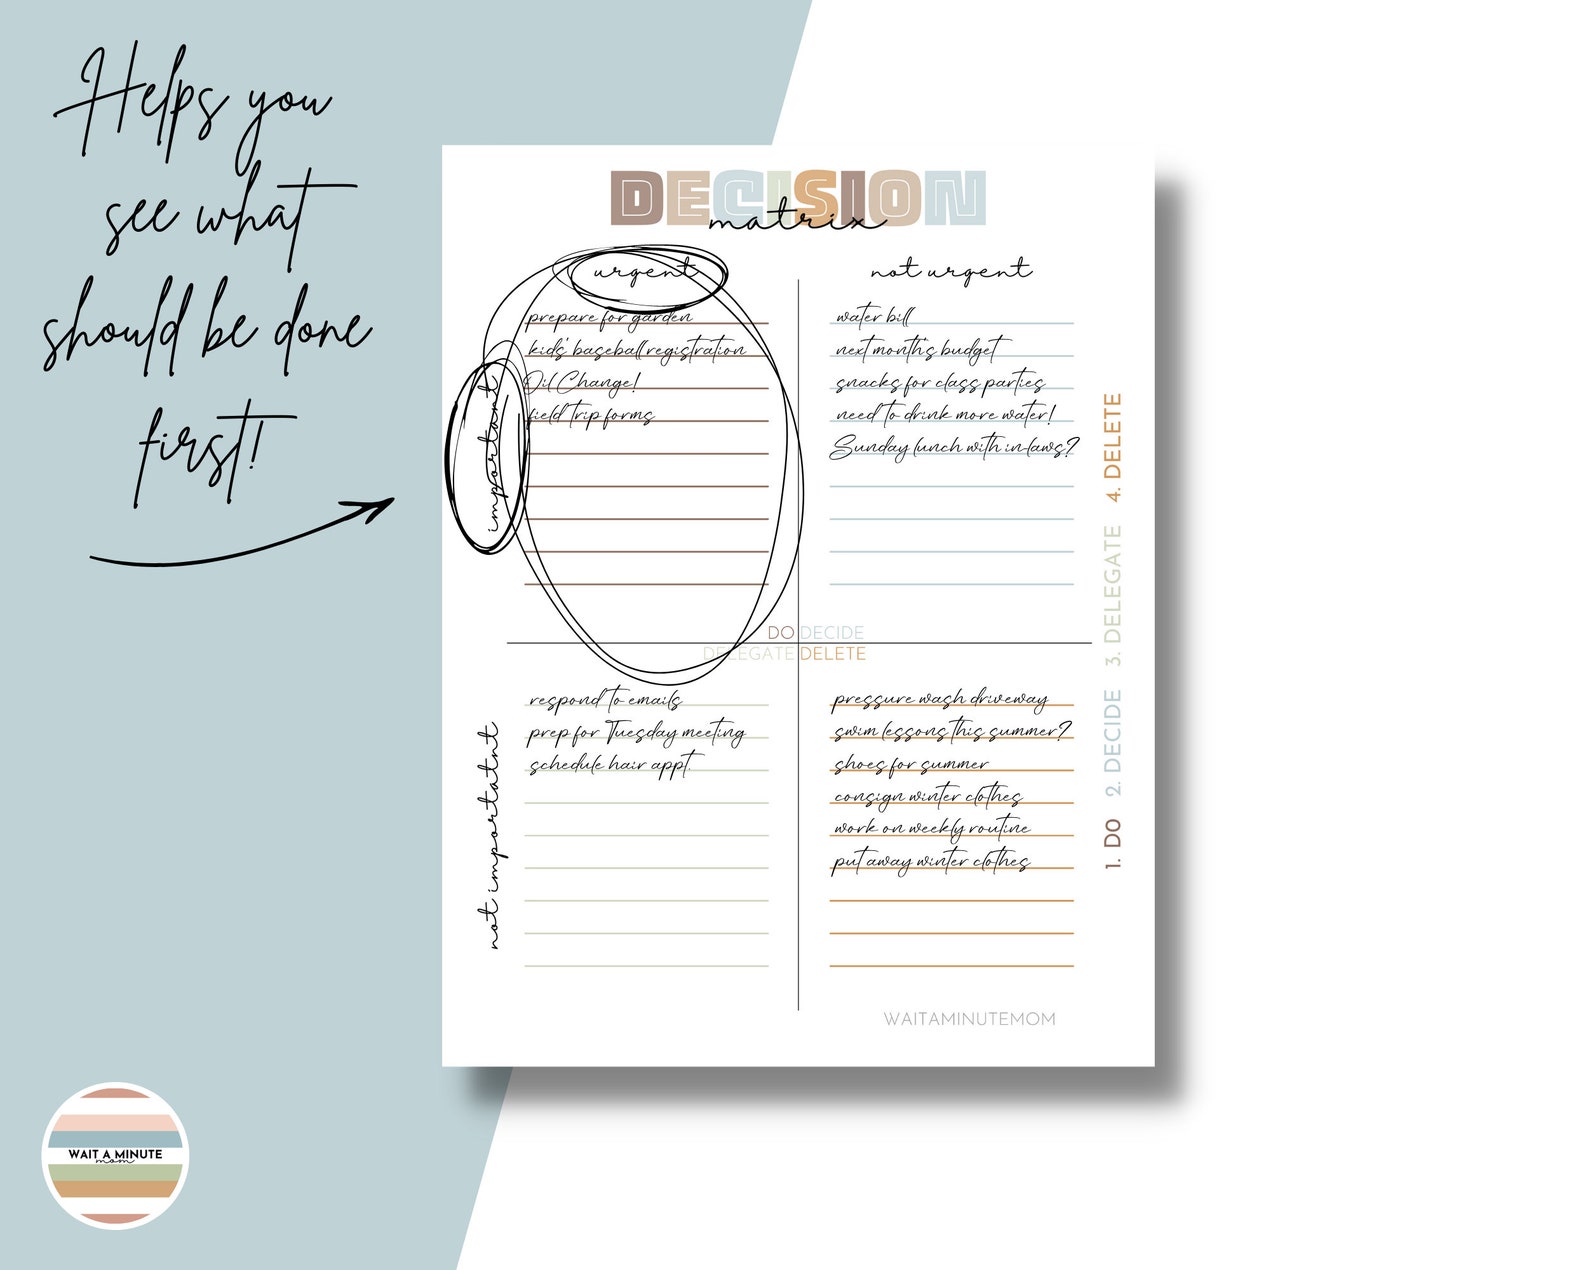 Helps you
see what
should be done
first!
DECISION
matrix
urgent
not urgent
important
prepare for garden
kids' baseball registration
Oil Change!
field trip forms
water bill
next month's budget
snacks for class parties
need to drink more water!
Sunday lunch with in-laws?
DO DECIDE
DELEGATE DELETE
not importatnt
respond to emails
prep for Tuesday meeting
schedule hair appt.
pressure wash driveway
swim lessons this summer?
shoes for summer
consign winter clothes
work on weekly routine
put away winter clothes
1. DO 2. DECIDE 3. DELEGATE 4. DELETE
WAITAMINUTEMOM
WAIT A MINUTE
mom